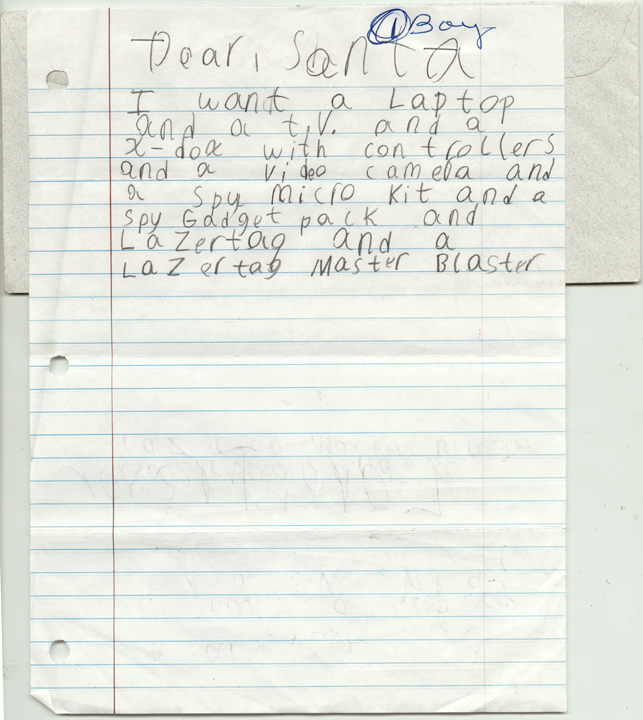 ① Boy
Dear, Santa
I want a Laptop
and a t.V. and a
x-dox with controllers
and a video camera and
a spy micro Kit and a
spy Gadget pack and
LaZertag and a
LaZertag Master Blaster